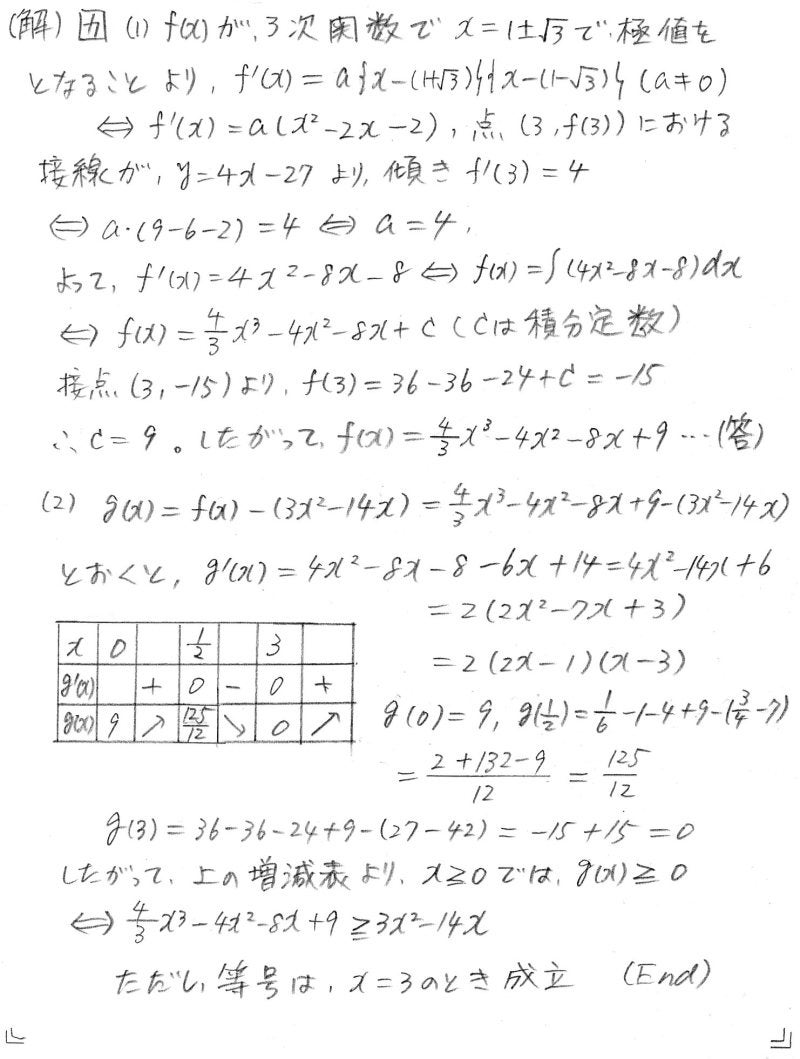 (解) 五 (1) f(x)が、3次関数で x=1±√3で、極値を
となることより、f'(x)=a{x-(1+√3)}{x-(1-√3)} (a≠0)
⇔ f'(x)=a(x²-2x-2)、点(3,f(3))における
接線が、y=4x-27より、傾きf'(3)=4
⇔ a・(9-6-2)=4 ⇔ a=4,
よって、f'(x)=4x²-8x-8 ⇔ f(x)=∫(4x²-8x-8)dx
⇔ f(x)=4/3x³-4x²-8x+C (Cは積分定数)
接点(3,-15)より、f(3)=36-36-24+C=-15
∴C=9。したがって、f(x)=4/3x³-4x²-8x+9 …(答)
(2) g(x)=f(x)-(3x²-14x)=4/3x³-4x²-8x+9-(3x²-14x)
とおくと、g'(x)=4x²-8x-8-6x+14=4x²-14x+6
=2(2x²-7x+3)
=2(2x-1)(x-3)
x 0 1/2 3
g'(x) + 0 - 0 +
g(x) 9 ↗ 125/12 ↘ 0 ↗
g(0)=9, g(1/2)=1/6-1-4+9-(3/4-7)
=(2+132-9)/12=125/12
g(3)=36-36-24+9-(27-42)=-15+15=0
したがって、上の増減表より、x≧0では、g(x)≧0
⇔ 4/3x³-4x²-8x+9≧3x²-14x
ただし、等号は、x=3のとき成立 (End)